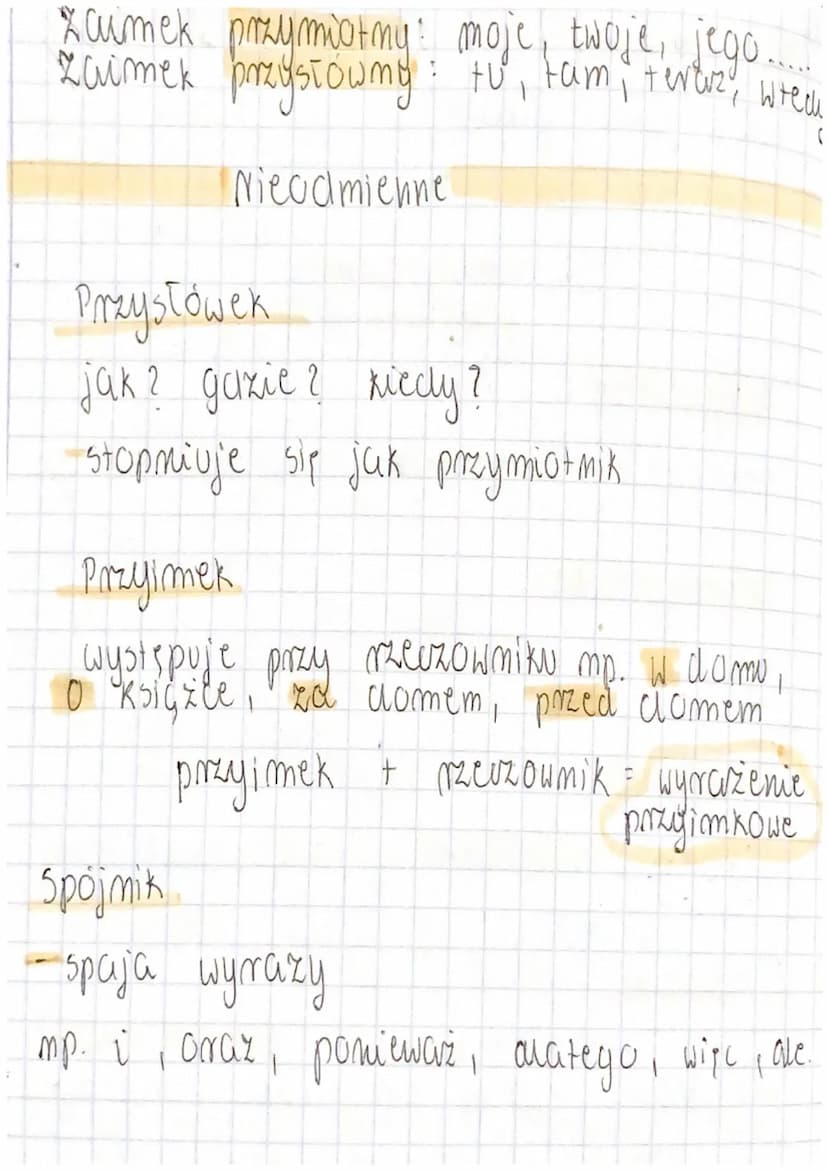 zaimek przymiotny: moje, twoje, jego.....
zaimek przysłówny: tu, tam, teraz, wtedy
Nieodmienne
Przysłówek
jak? gdzie? kiedy?
-stopniuje się jak przymiotnik
Przyimek
występuje przy rzeczowniku np. w domu,
o książce, za domem, przed domem
przyimek + rzeczownik = wyrażenie
przyimkowe
Spójnik
-spaja wyrazy
np. i, oraz, ponieważ, dlatego, więc, ale.